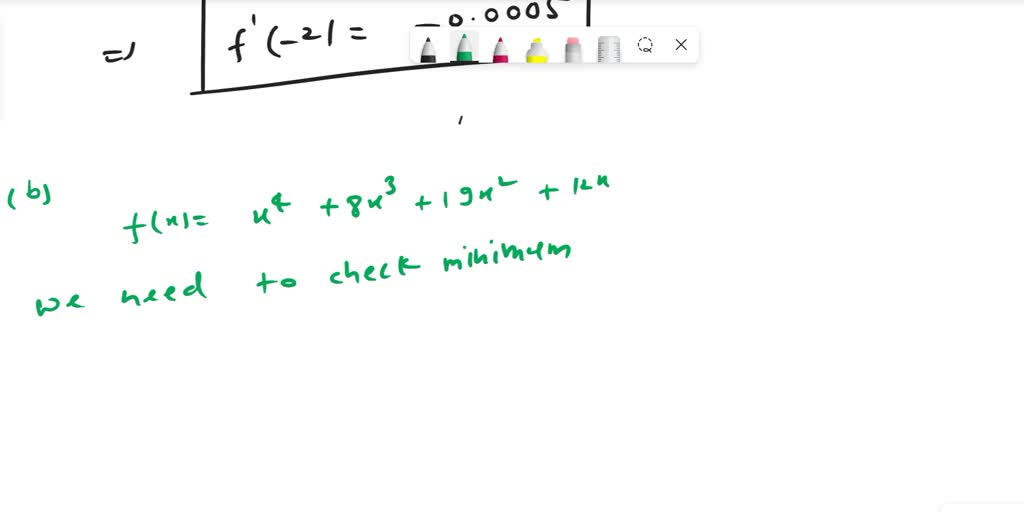 => f'(-2) = -0.0005
(b)
f(x) = x⁴ + 8x³ + 19x² + 12x
we need to check minimum